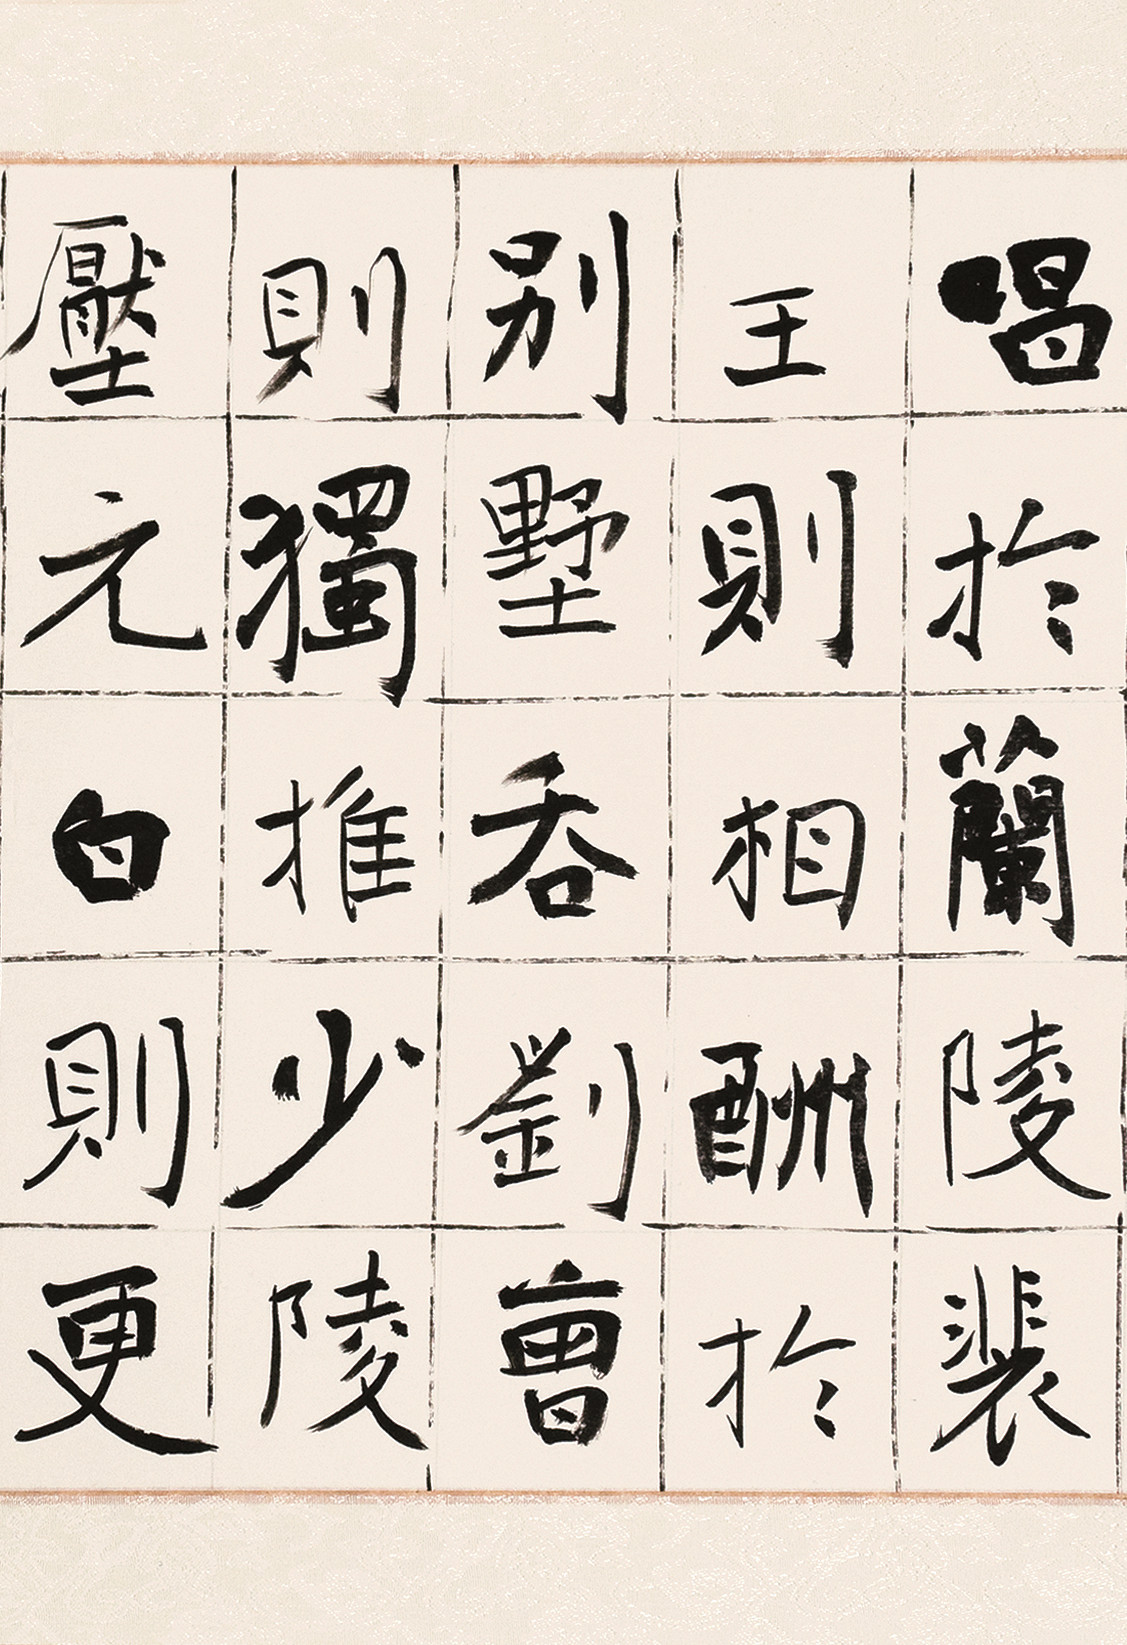 唱於蘭陵裴
王則相酬於
别墅吞劉曹
則獨推少陵
壓元白則更